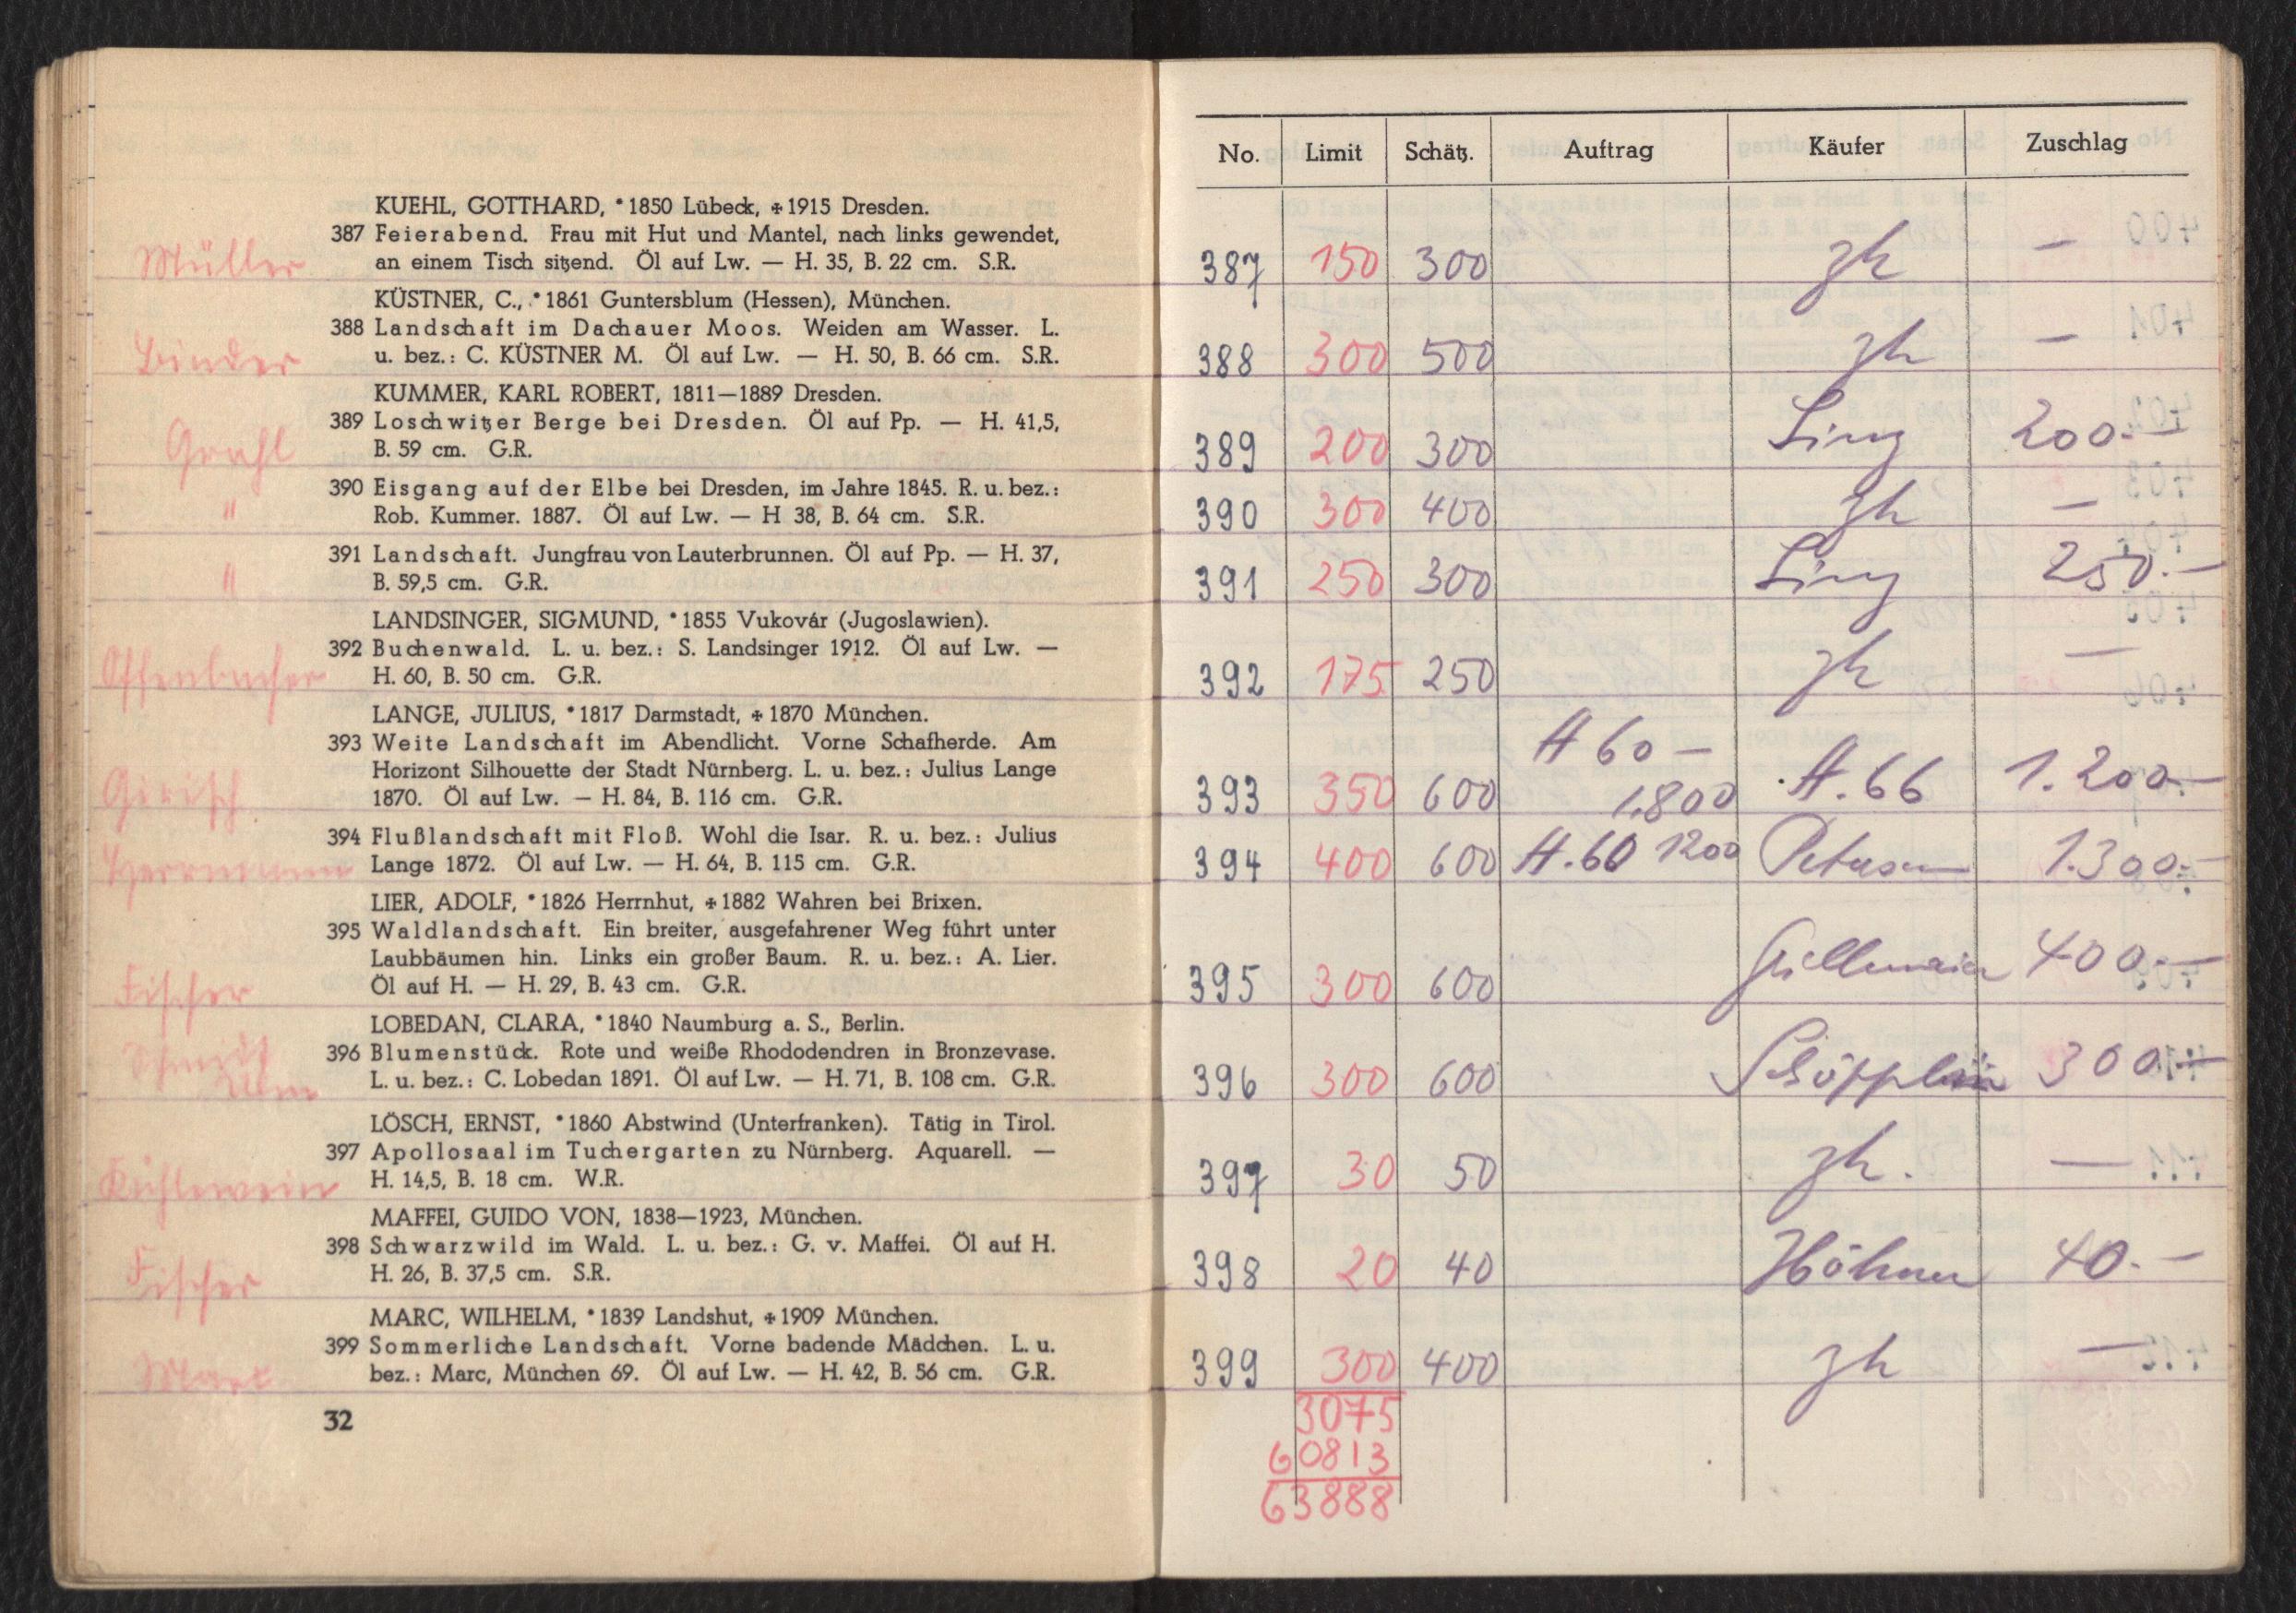 KUEHL, GOTTHARD, *1850 Lübeck, ✠1915 Dresden.
387 Feierabend. Frau mit Hut und Mantel, nach links gewendet,
Müller an einem Tisch sitzend. Öl auf Lw. — H. 35, B. 22 cm. S.R.
KÜSTNER, C., *1861 Guntersblum (Hessen), München.
388 Landschaft im Dachauer Moos. Weiden am Wasser. L.
Binder u. bez.: C. KÜSTNER M. Öl auf Lw. — H. 50, B. 66 cm. S.R.
KUMMER, KARL ROBERT, 1811—1889 Dresden.
389 Loschwitzer Berge bei Dresden. Öl auf Pp. — H. 41,5,
Grahl B. 59 cm. G.R.
390 Eisgang auf der Elbe bei Dresden, im Jahre 1845. R. u. bez.:
" Rob. Kummer. 1887. Öl auf Lw. — H 38, B. 64 cm. S.R.
391 Landschaft. Jungfrau von Lauterbrunnen. Öl auf Pp. — H. 37,
" B. 59,5 cm. G.R.
LANDSINGER, SIGMUND, *1855 Vukovár (Jugoslawien).
392 Buchenwald. L. u. bez.: S. Landsinger 1912. Öl auf Lw. —
Offenbacher H. 60, B. 50 cm. G.R.
LANGE, JULIUS, *1817 Darmstadt, ✠1870 München.
393 Weite Landschaft im Abendlicht. Vorne Schafherde. Am
Horizont Silhouette der Stadt Nürnberg. L. u. bez.: Julius Lange
Girisch 1870. Öl auf Lw. — H. 84, B. 116 cm. G.R.
394 Flußlandschaft mit Floß. Wohl die Isar. R. u. bez.: Julius
Herrmann Lange 1872. Öl auf Lw. — H. 64, B. 115 cm. G.R.
LIER, ADOLF, *1826 Herrnhut, ✠1882 Wahren bei Brixen.
395 Waldlandschaft. Ein breiter, ausgefahrener Weg führt unter
Laubbäumen hin. Links ein großer Baum. R. u. bez.: A. Lier.
Fischer Öl auf H. — H. 29, B. 43 cm. G.R.
LOBEDAN, CLARA, *1840 Naumburg a. S., Berlin.
396 Blumenstück. Rote und weiße Rhododendren in Bronzevase.
L. u. bez.: C. Lobedan 1891. Öl auf Lw. — H. 71, B. 108 cm. G.R.
Ulm
LÖSCH, ERNST, *1860 Abstwind (Unterfranken). Tätig in Tirol.
397 Apollosaal im Tuchergarten zu Nürnberg. Aquarell. —
Kühlewein H. 14,5, B. 18 cm. W.R.
MAFFEI, GUIDO VON, 1838—1923, München.
398 Schwarzwild im Wald. L. u. bez.: G. v. Maffei. Öl auf H.
Fischer H. 26, B. 37,5 cm. S.R.
MARC, WILHELM, *1839 Landshut, ✠1909 München.
399 Sommerliche Landschaft. Vorne badende Mädchen. L. u.
bez.: Marc, München 69. Öl auf Lw. — H. 42, B. 56 cm. G.R.
32
No. Limit Schätz. Auftrag Käufer Zuschlag
387 150 300 zh —
388 300 500 zh —
389 200 300 Linz 200.—
390 300 400 zh —
391 250 300 Linz 250.—
392 175 250 zh —
A 60 —
393 350 600 1.800 A. 66 1.200.—
394 400 600 A. 60 1200 Petersen 1.300.—
395 300 600 400.—
396 300 600 Schöpplein 300.—
397 30 50 zh. —
398 20 40 Höhner 40.—
399 300 400 zh —
3075
60813
63888